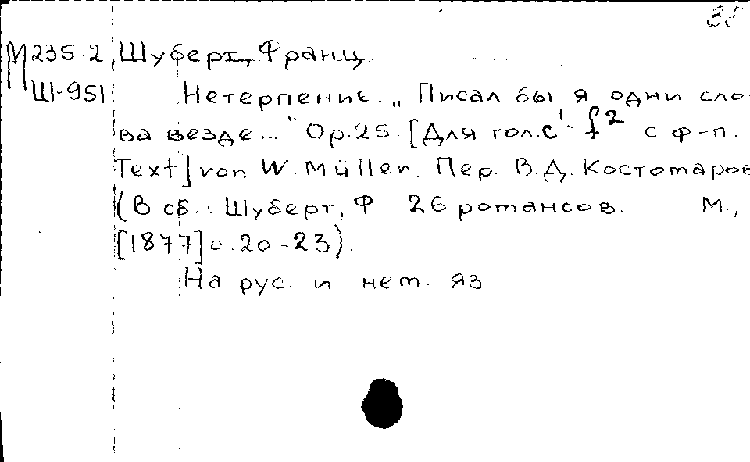 М235.2 Шуберт, Франц.
Ш-951 Нетерпение. „Писал бы я одни сло-
ва везде..." Ор.25. [Для гол. c¹-f² с ф-п.
Text] von W. Müller. Пер. В.Д. Костомаров
(В сб.: Шуберт, Ф 26 романсов. М.,
[1877] с.20-23).
На рус. и нем. яз